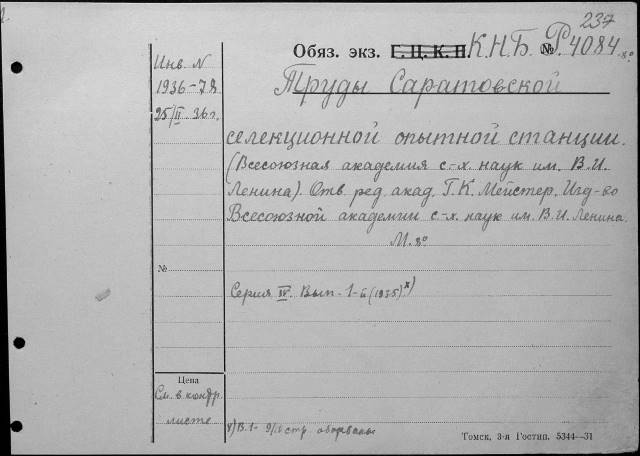 237
Обяз. экз. Г. Ц. К. П. К.Н.Б. № Р.4084. 8°
Инв. N
1936-78
25/II 36 г.
Труды Саратовской
селекционной опытной станции.
(Всесоюзная академия с.-х. наук им. В.И.
Ленина). Отв. ред. акад. Г.К. Мейстер. Изд-во
Всесоюзной академии с.-х. наук им. В.И. Ленина.
М. 8°
№
Серия IV. Вып. 1-й (1935) х)
Цена
См. в контр.
листе
х) В.1- стр. оборваны
Томск, 3-я Гостип. 5344—31